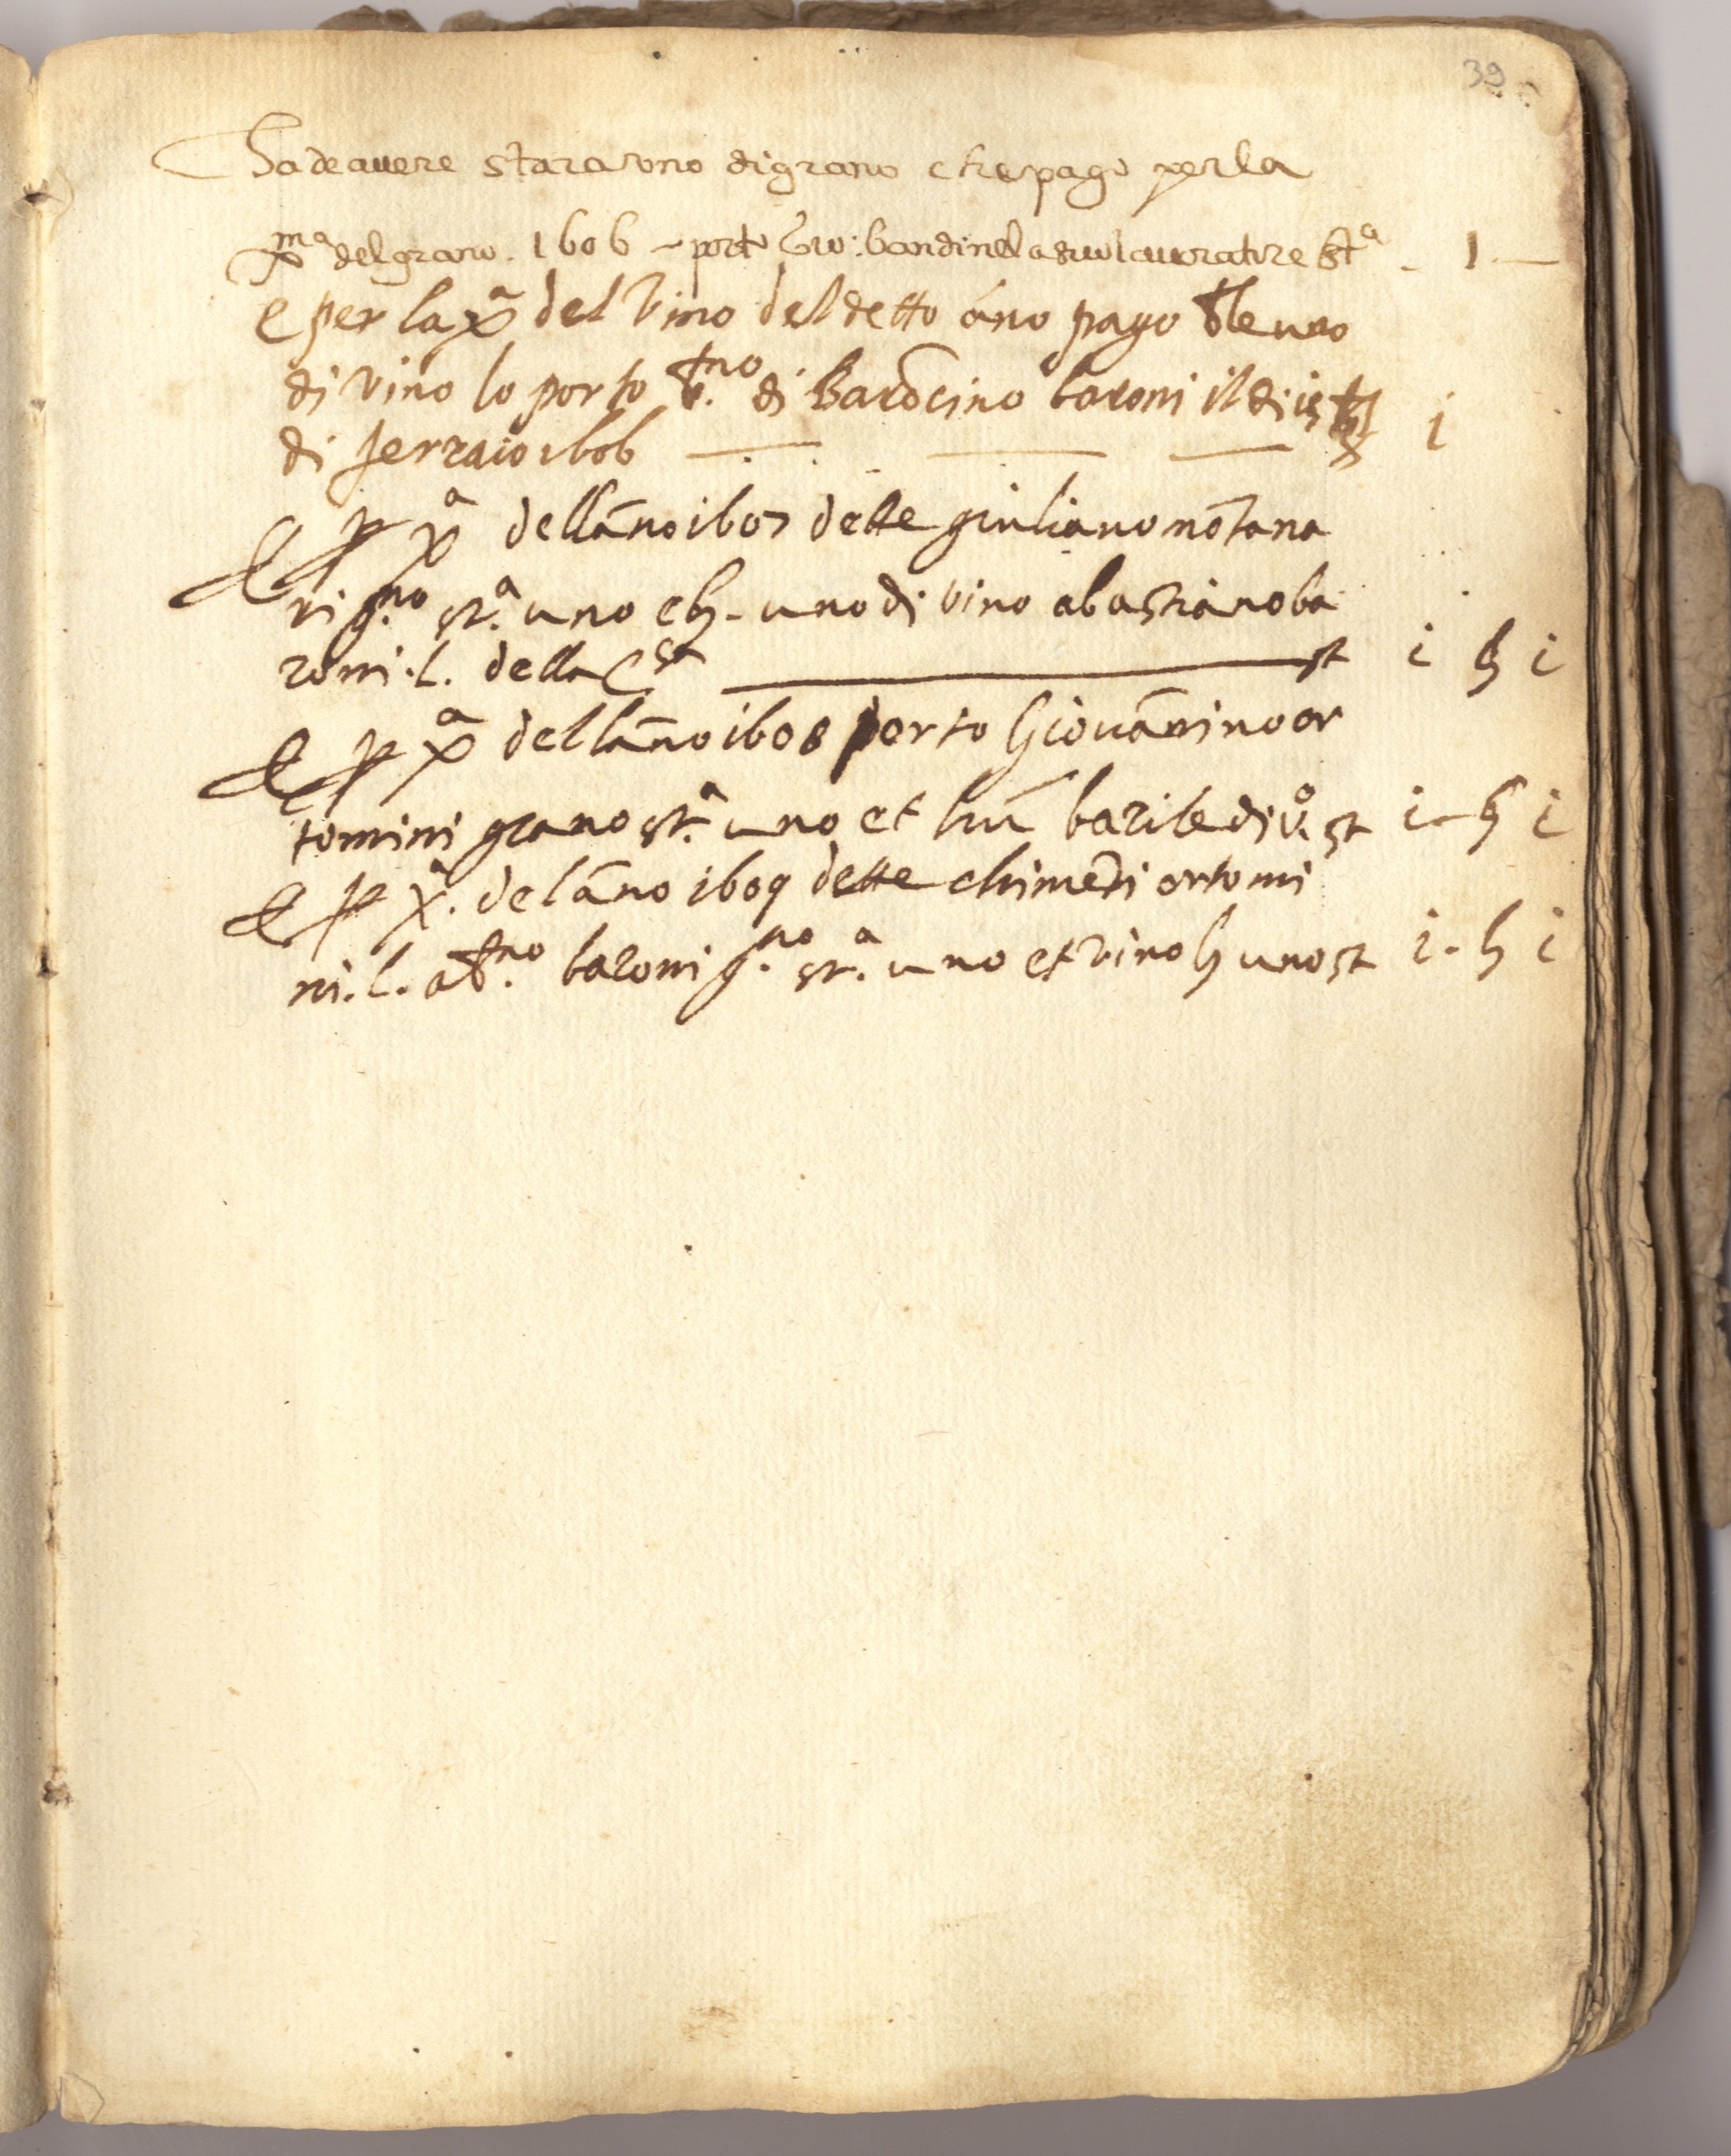 39
Ha de auere stara uno di grano che pago per la
xma del grano. 1606 - porto Gio: bandinel a suo lauoratore sta - 1 —
e per la xa del Vino del detto ano pago ble uno
di vino lo porto di Barocino baroni il di 18 i
di ferraio 1606
E p xa dellāno 1607 dette giuliano mōtana
ri g.no st.a uno e b. uno di vino a bastiano ba
roni. l. della st i b i
E p xa dellāno 1608 porto Giovānino or
tomini grano st.a uno et hū barile di v.o st i - b i
E p xa. del āno 1609 dette chimēti ortomi
ni. l. a b.no baroni g.no st.a uno et vino b uno st i - b i